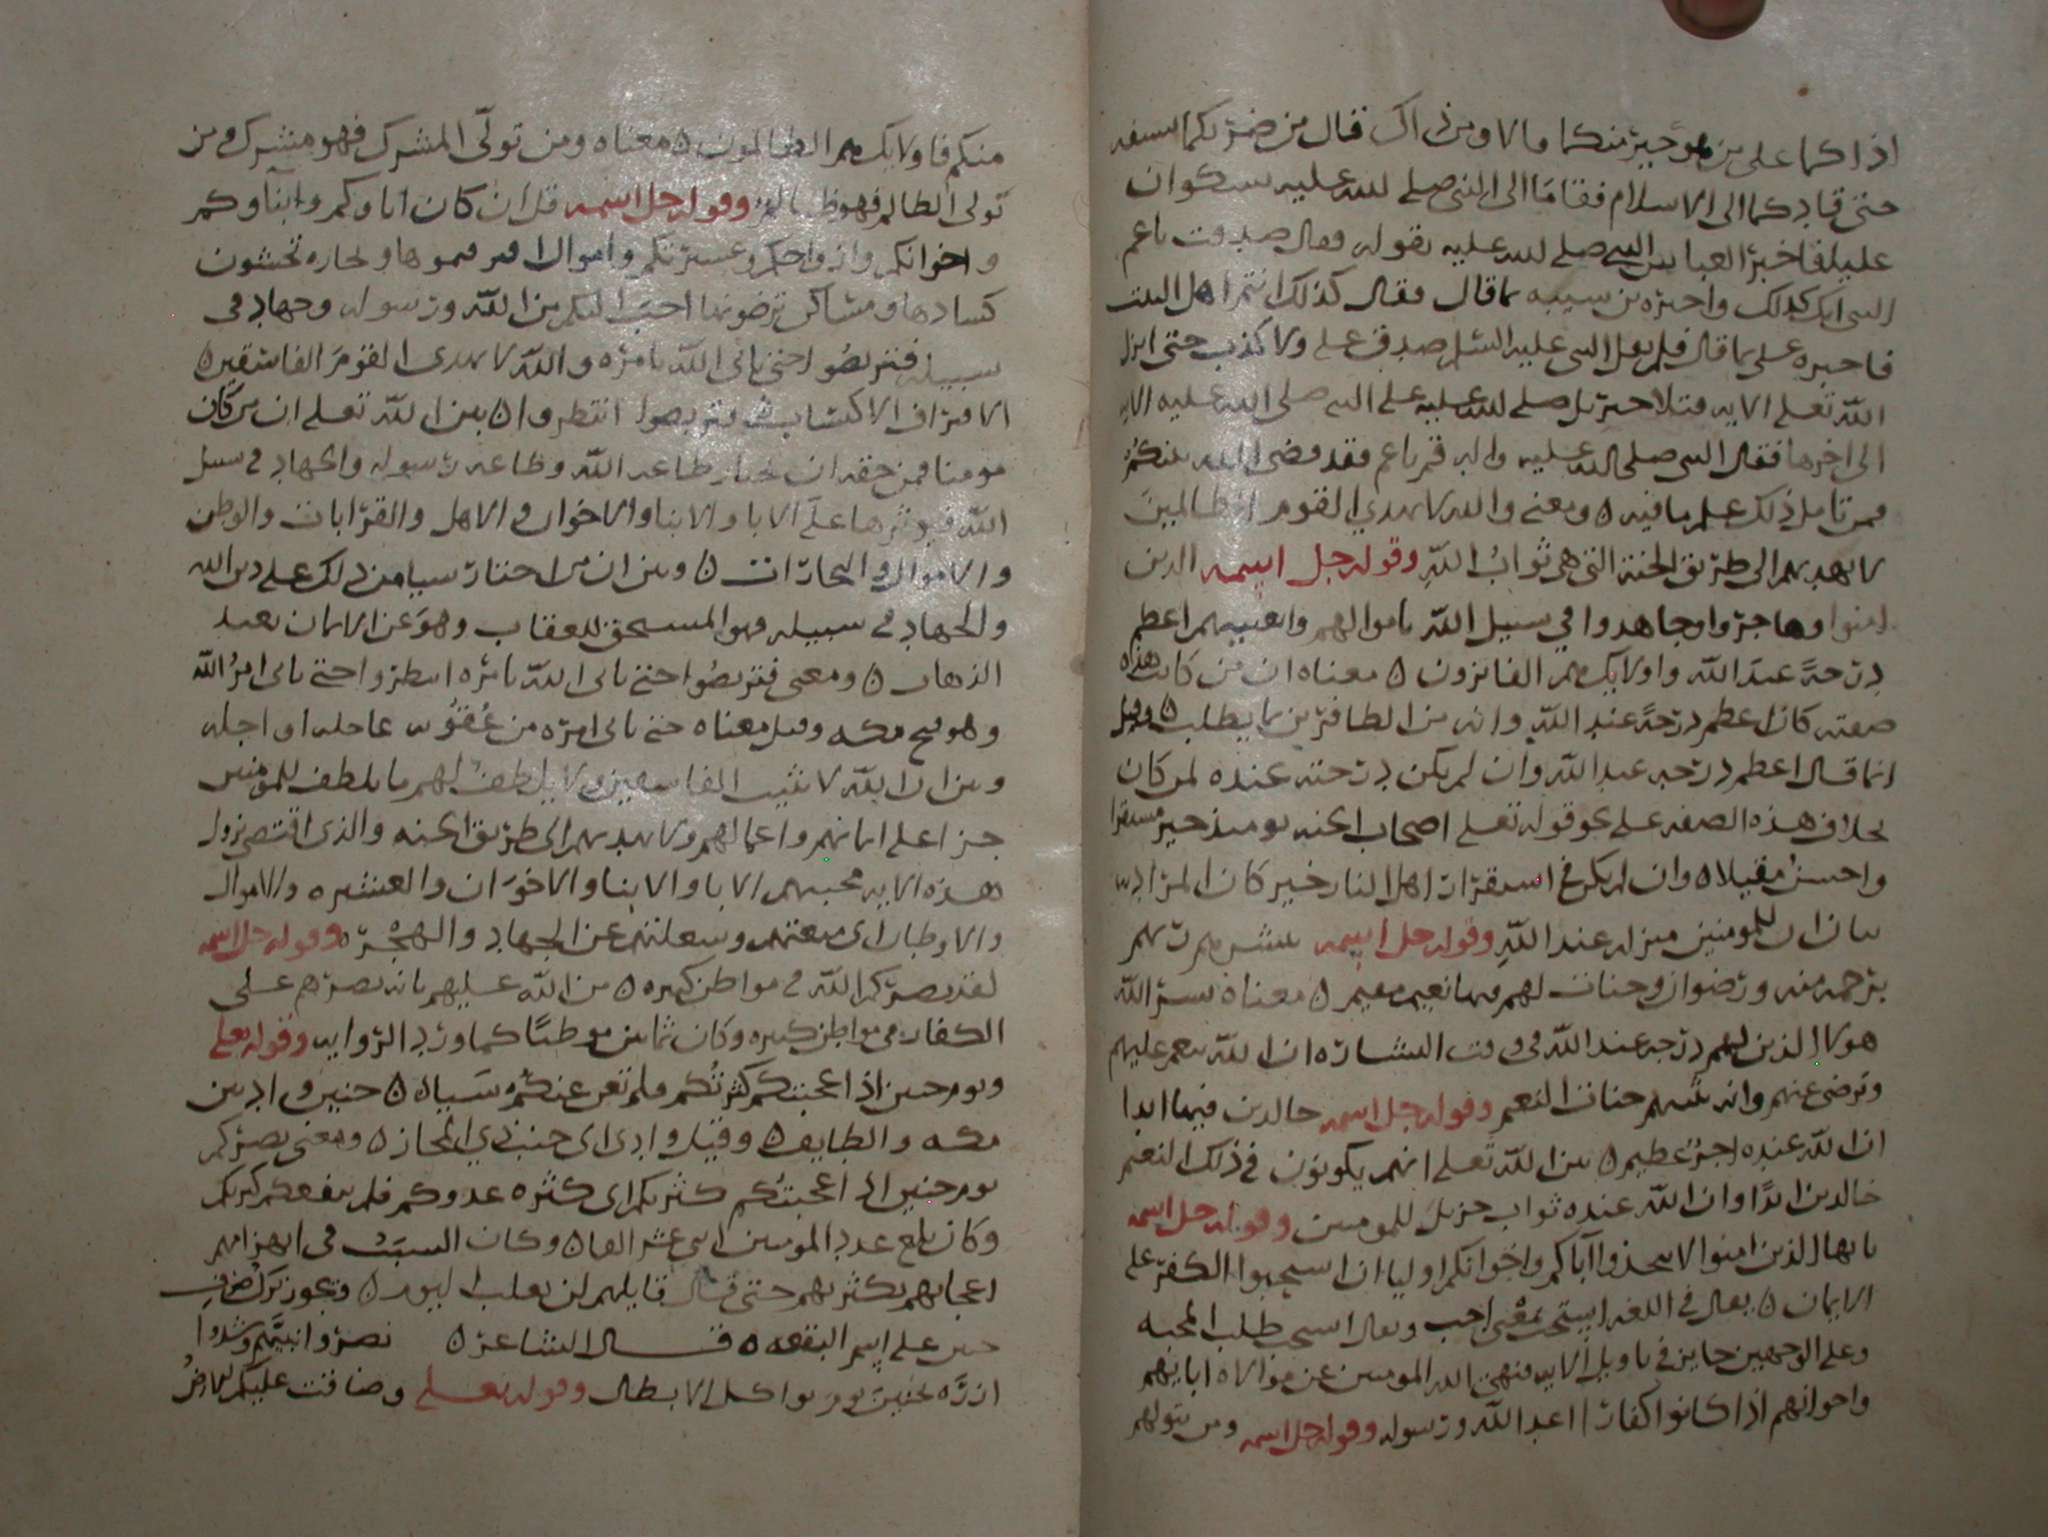 اذلكما على من هو خير منكما قالا ومن ذاك قال من ضربكما بسيفه
حتى قادكما الى الاسلام فقاما الى النبي صلى الله عليه يشكوان
عليا فاخبر العباس النبي صلى الله عليه بقوله فقال صدقت يا عم
النبي انك كذلك واخبره بن شيبه بما قال فقال كذلك انتم اهل البيت
فاخبره علي بما قال فلم يقل النبي عليه السلم صدق علي ولا كذب حتى انزل
الله تعلى الايه فتلا جبريل صلى الله عليه على النبي صلى الله عليه الايه
الى اخرها فقال النبي صلى الله عليه واله قم يا عم فقد قضى الله بينكم
فمن تامل ذلك علم ما فيه ٥ ومعنى والله لا يهدي القوم الظالمين
لا يهديهم الى طريق الجنة التي هي ثواب الله وقوله جل اسمه الذين
امنوا وهاجروا وجاهدوا في سبيل الله باموالهم وانفسهم اعظم
درجة عند الله واولايك هم الفايزون ٥ معناه ان من كانت هذه
صفته كان اعظم درجة عند الله وانه من الظافرين بما يطلب ٥ وقيل
انما قال اعظم درجه عند الله وان لم يكن درجته عنده لمن كان
بخلاف هذه الصفه على نحو قوله تعلى اصحاب الجنه يوميذ خير مستقرا
واحسن مقيلا ٥ وان لم يكن في استقرار اهل النار خير كان المراد به
بيان ان للمومنين منزله عند الله وقوله جل اسمه يبشرهم ربهم
برحمه منه ورضوان وجنات لهم فيها نعيم مقيم ٥ معناه يسر الله
هولا الذين لهم درجه عند الله في وقت البشاره ان الله ينعم عليهم
وترضى عنهم وانه يثيبهم جنات النعيم وقوله جل اسمه خالدين فيها ابدا
ان الله عنده اجر عظيم ٥ بين الله تعلى انهم يكونون في ذلك النعيم
خالدين ابدًا وان الله عنده ثواب جزيل للمومنين وقوله جل اسمه
يايها الذين امنوا لا تتخذوا آباكم واخوانكم اوليا ان استحبوا الكفر على
الايمان ٥ يقال في اللغه استحب بمعنى احب ويقال استحب طلب المحبه
وعلى الوجهين جايز في تاويل الايه فنهى الله المومنين عن موالاه ابايهم
واخوانهم اذا كانوا كفارا اعدا الله ورسوله وقوله جل اسمه ومن يتولهم
منكم فاولايك هم الظالمون ٥ معناه ومن تولى المشرك فهو مشرك ومن
تولى الظالم فهو ظالم وقوله جل اسمه قل ان كان اباوكم وابناوكم
واخوانكم وازواجكم وعشيرتكم واموال اقترفتموها وتجاره تخشون
كسادها ومساكن ترضونها احب اليكم من الله ورسوله وجهاد في
سبيله فتربصوا حتى ياتي الله بامره والله لا يهدي القوم الفاسقين ٥
الاقتراف الاكتساب ٥ وتربصوا انتظروا ٥ بين الله تعلى ان من كان
مومنا فمن حقه ان يختار طاعه الله وطاعه رسوله والجهاد في سبيل
الله فيوثرها على الابا والابنا والاخوان والاهل والقرابات والوطن
والاموال والتجارات ٥ وبين ان من اختار سيا من ذلك على دين الله
والجهاد في سبيله فهو المستحق للعقاب وهو عن الايمان بعيد
الذهاب ٥ ومعنى فتربصوا حتى ياتي الله بامره انتظروا حتى ياتي امر الله
وهو فتح مكه وقيل معناه حتى ياتي امره من عقوبه عاجله او اجله
وبين ان الله لا يثيب الفاسقين ولا يلطف لهم ما يلطف للمومنين
جزا على ايمانهم واعمالهم ولا يهديهم الى طريق الجنه والذي اقتضى نزول
هذه الايه محبتهم الابا والابنا والاخوان والعشيره والاموال
والاوطان اي منعتهم وشغلتهم عن الجهاد والهجره وقوله جل اسمه
لقد نصركم الله في مواطن كثيره ٥ من الله عليهم بانه نصرهم على
الكفار في مواطن كثيره وكان ثمانين موطنًا كما ورد الروايه وقوله تعلى
ويوم حنين اذ اعجبتكم كثرتكم فلم تغن عنكم شيا ٥ حنين واد بين
مكه والطايف ٥ وقيل وادي الى جنب ذي المجاز ٥ ومعنى نصركم
يوم حنين اذ اعجبتكم كثرتكم اي كثره عدوكم فلم ينفعكم كثرتكم
وكان بلغ عدد المومنين اثنى عشر الفا ٥ وكان السبب في انهزامهم
اعجابهم بكثرتهم حتى قال قايلهم لن نغلب اليوم ٥ ويجوز ترك صرف
حنين على اسم البقعه ٥ قال الشاعر ٥ نصروا نبيهم وشدوا
ازره بحنين يوم تواكل الابطال وقوله تعلى وضاقت عليكم الارض